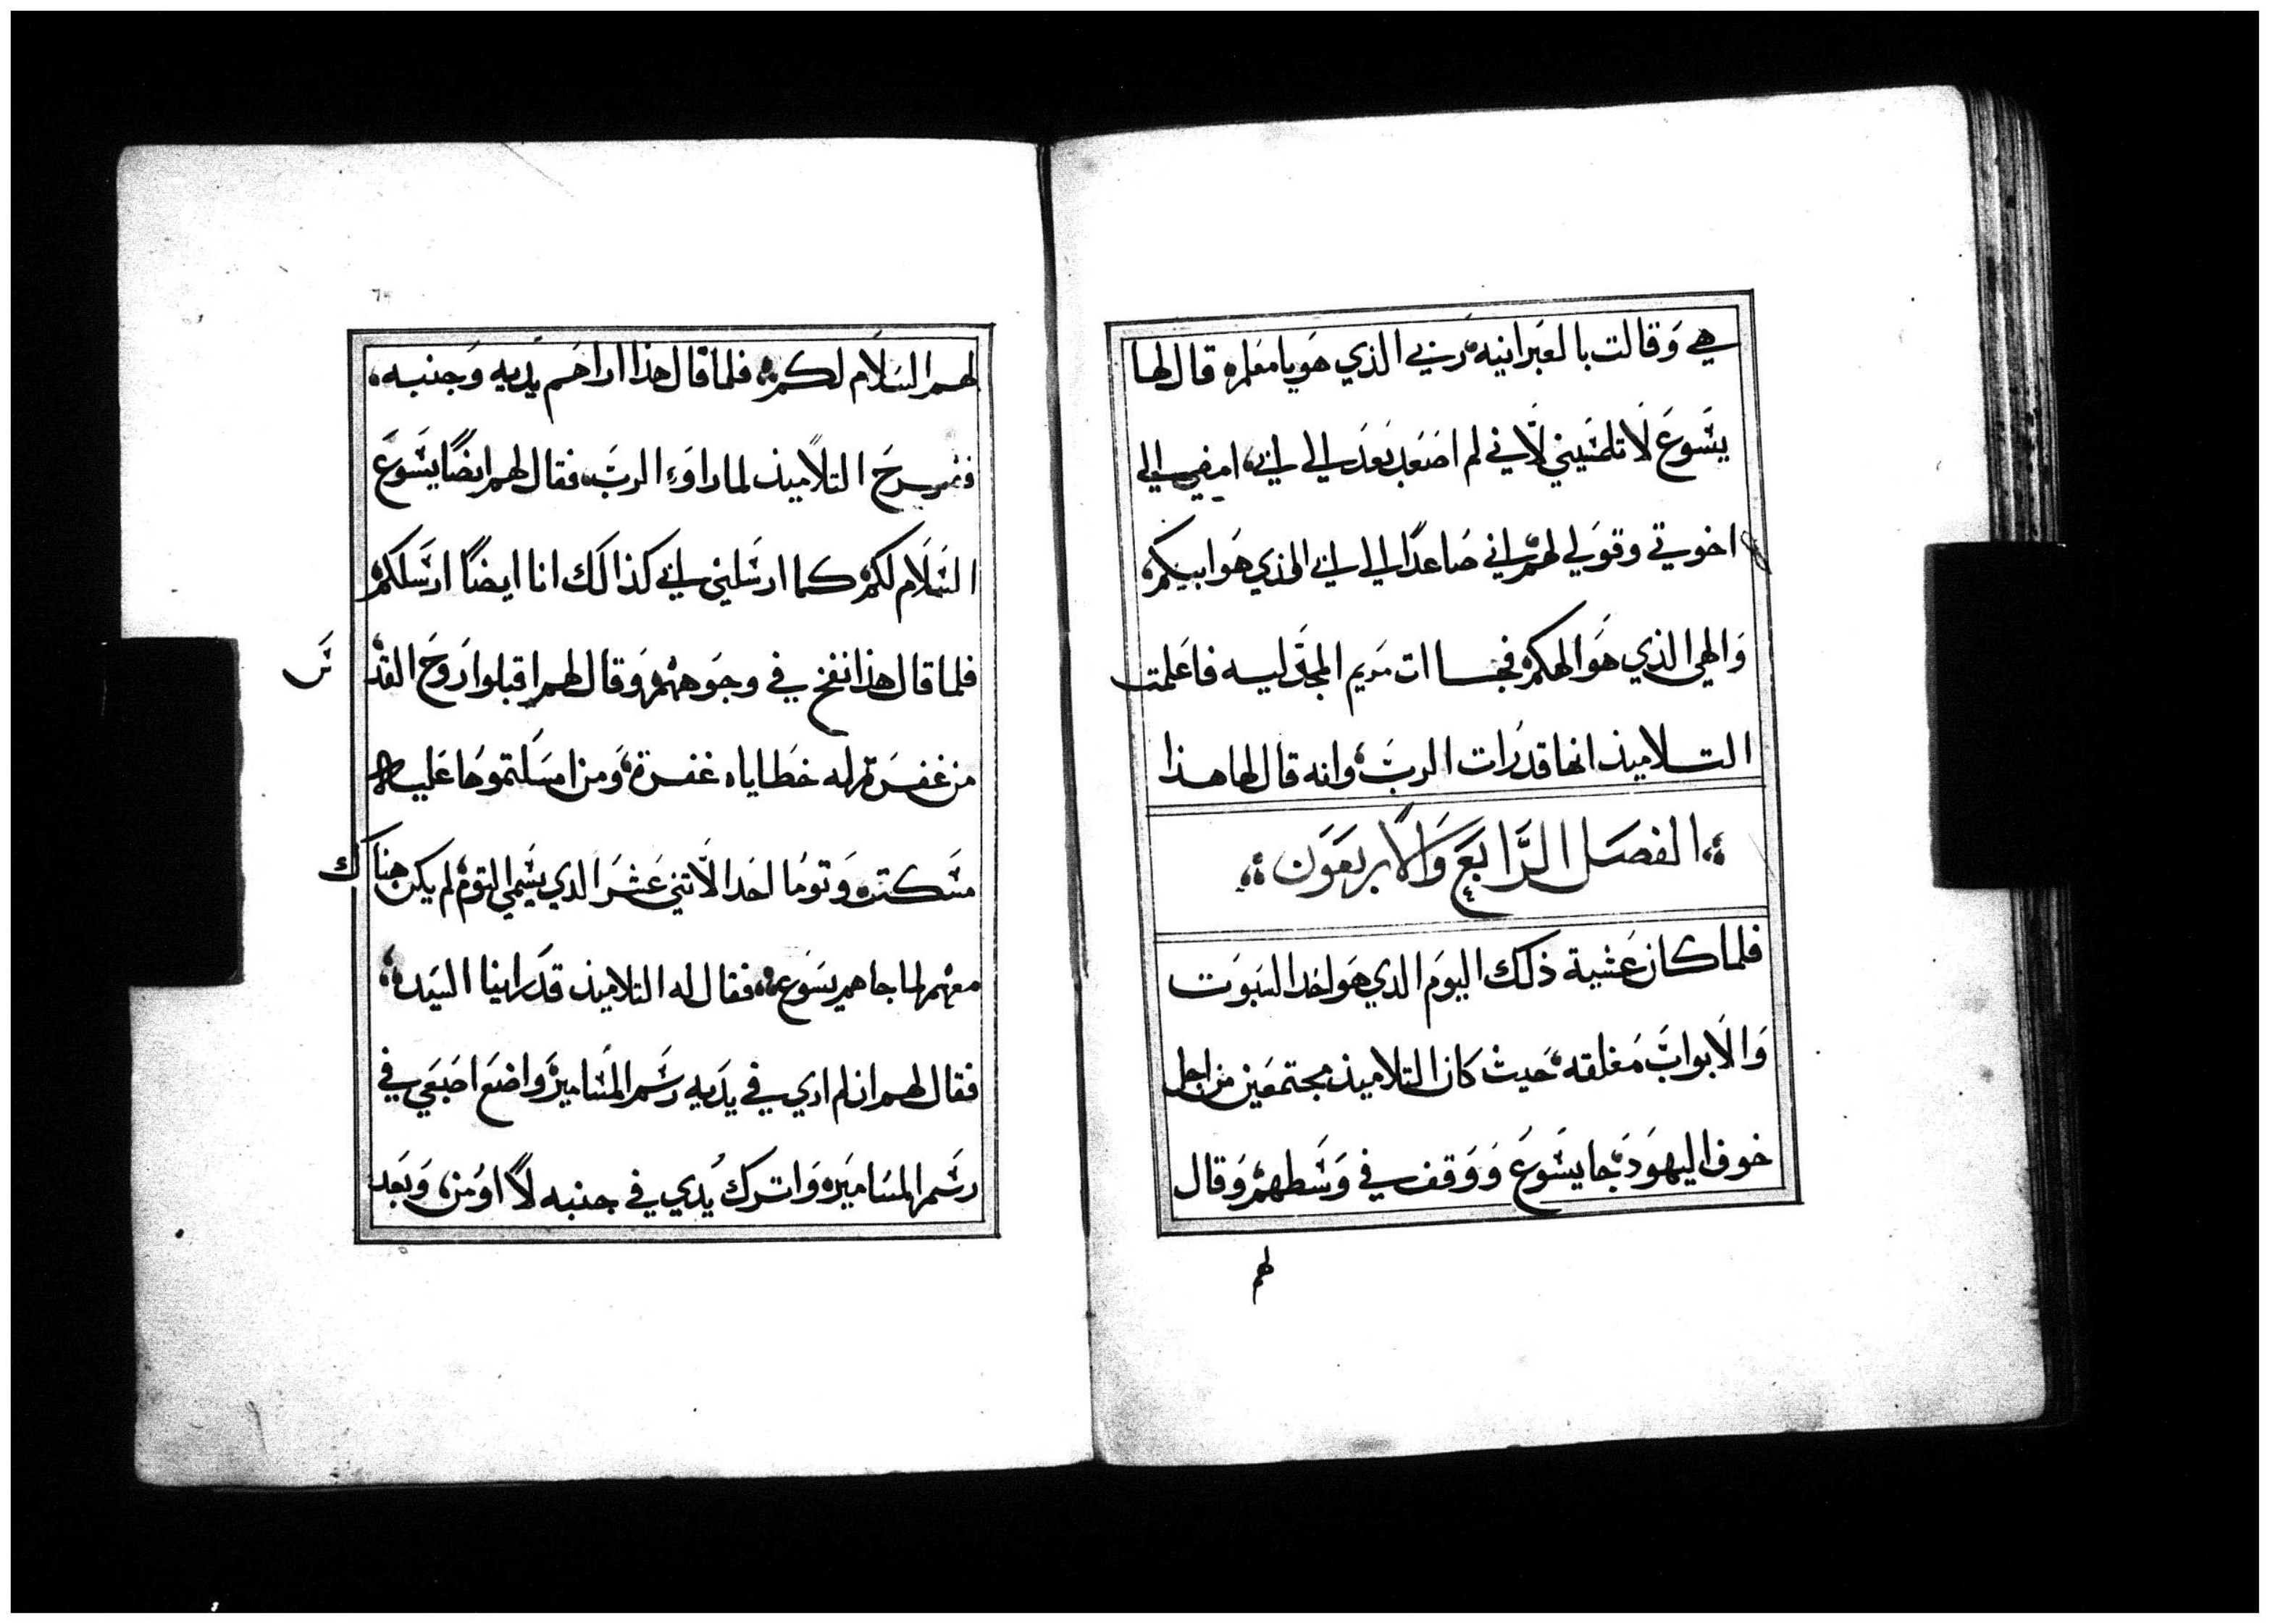 هي وَقالت بالعبَرانيه رَبي الذي هوَ يا معَلم قال لها
يسَّوعَ لَا تلمسَيني لَّاني لم اصَعَد بَعَد الي ابي، امضي الي
اخوتي وقوَلي لهم اني صَاعداً الي ابي الذي هوَ ابيكم
وَالهي الذي هوَ الهكم فجاات مَريم المجَدليه فاعَلمت
التلاميذ انها قدرَات الربَ وانه قال لها هذا
الفصَل الرَّابعَ وَالاربعَوَن
فلما كان عَشية ذلك اليوَم الدي هوَ احَد السَبوَت
وَالَابوابَ مَغلقه حَيث كان التلاميذ مجتمعَين من اجل
خوف اليهوَد جا يسَّوعَ وَوَقف في وَسَّطهم وَقال
لهم
لهم السَلَام لكم فلما قال هذا اراهَم يدَيه وَجنبه
ففرحَ التلَاميذ لما راوَا الربَ فقال لهم ايضَاً يسَّوَعَ
السَّلَام لكم كما ارسَّلني ابي كذالَك انا ايضَاً ارسَّلكم
فلما قال هذا نفخ في وجوَههم وَقال لهم اقبلوا روَحَ القدس
من غفرَتم له خطاياه غفرة وَمن امسَكتموهَا عَليه
مسَّكته وَتومَا احَد الَاتني عَشَر الدي يسَّمي التوم لم يكن هناك
معَهم لما جاهم يسَوعَ فقال له التلاميذ قدَ راينا السَيد
فقال لهم ان لم اري في يدَيه رسَّم المسَّامير وَاضعَ اصَبعَي في
رسَّم المسَاميَر وَاترك يَدي في جنبه لَا اوَمن وَبعَد